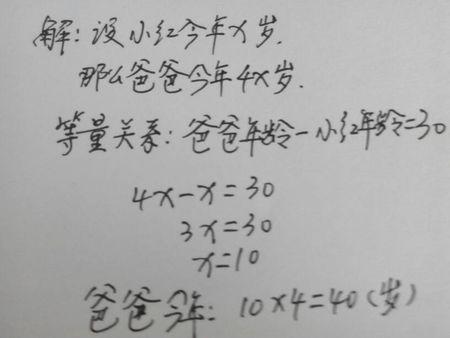 解：设小红今年x岁.
那么爸爸今年4x岁.
等量关系：爸爸年龄-小红年龄=30
4x-x=30
3x=30
x=10
爸爸今年：10×4=40(岁)